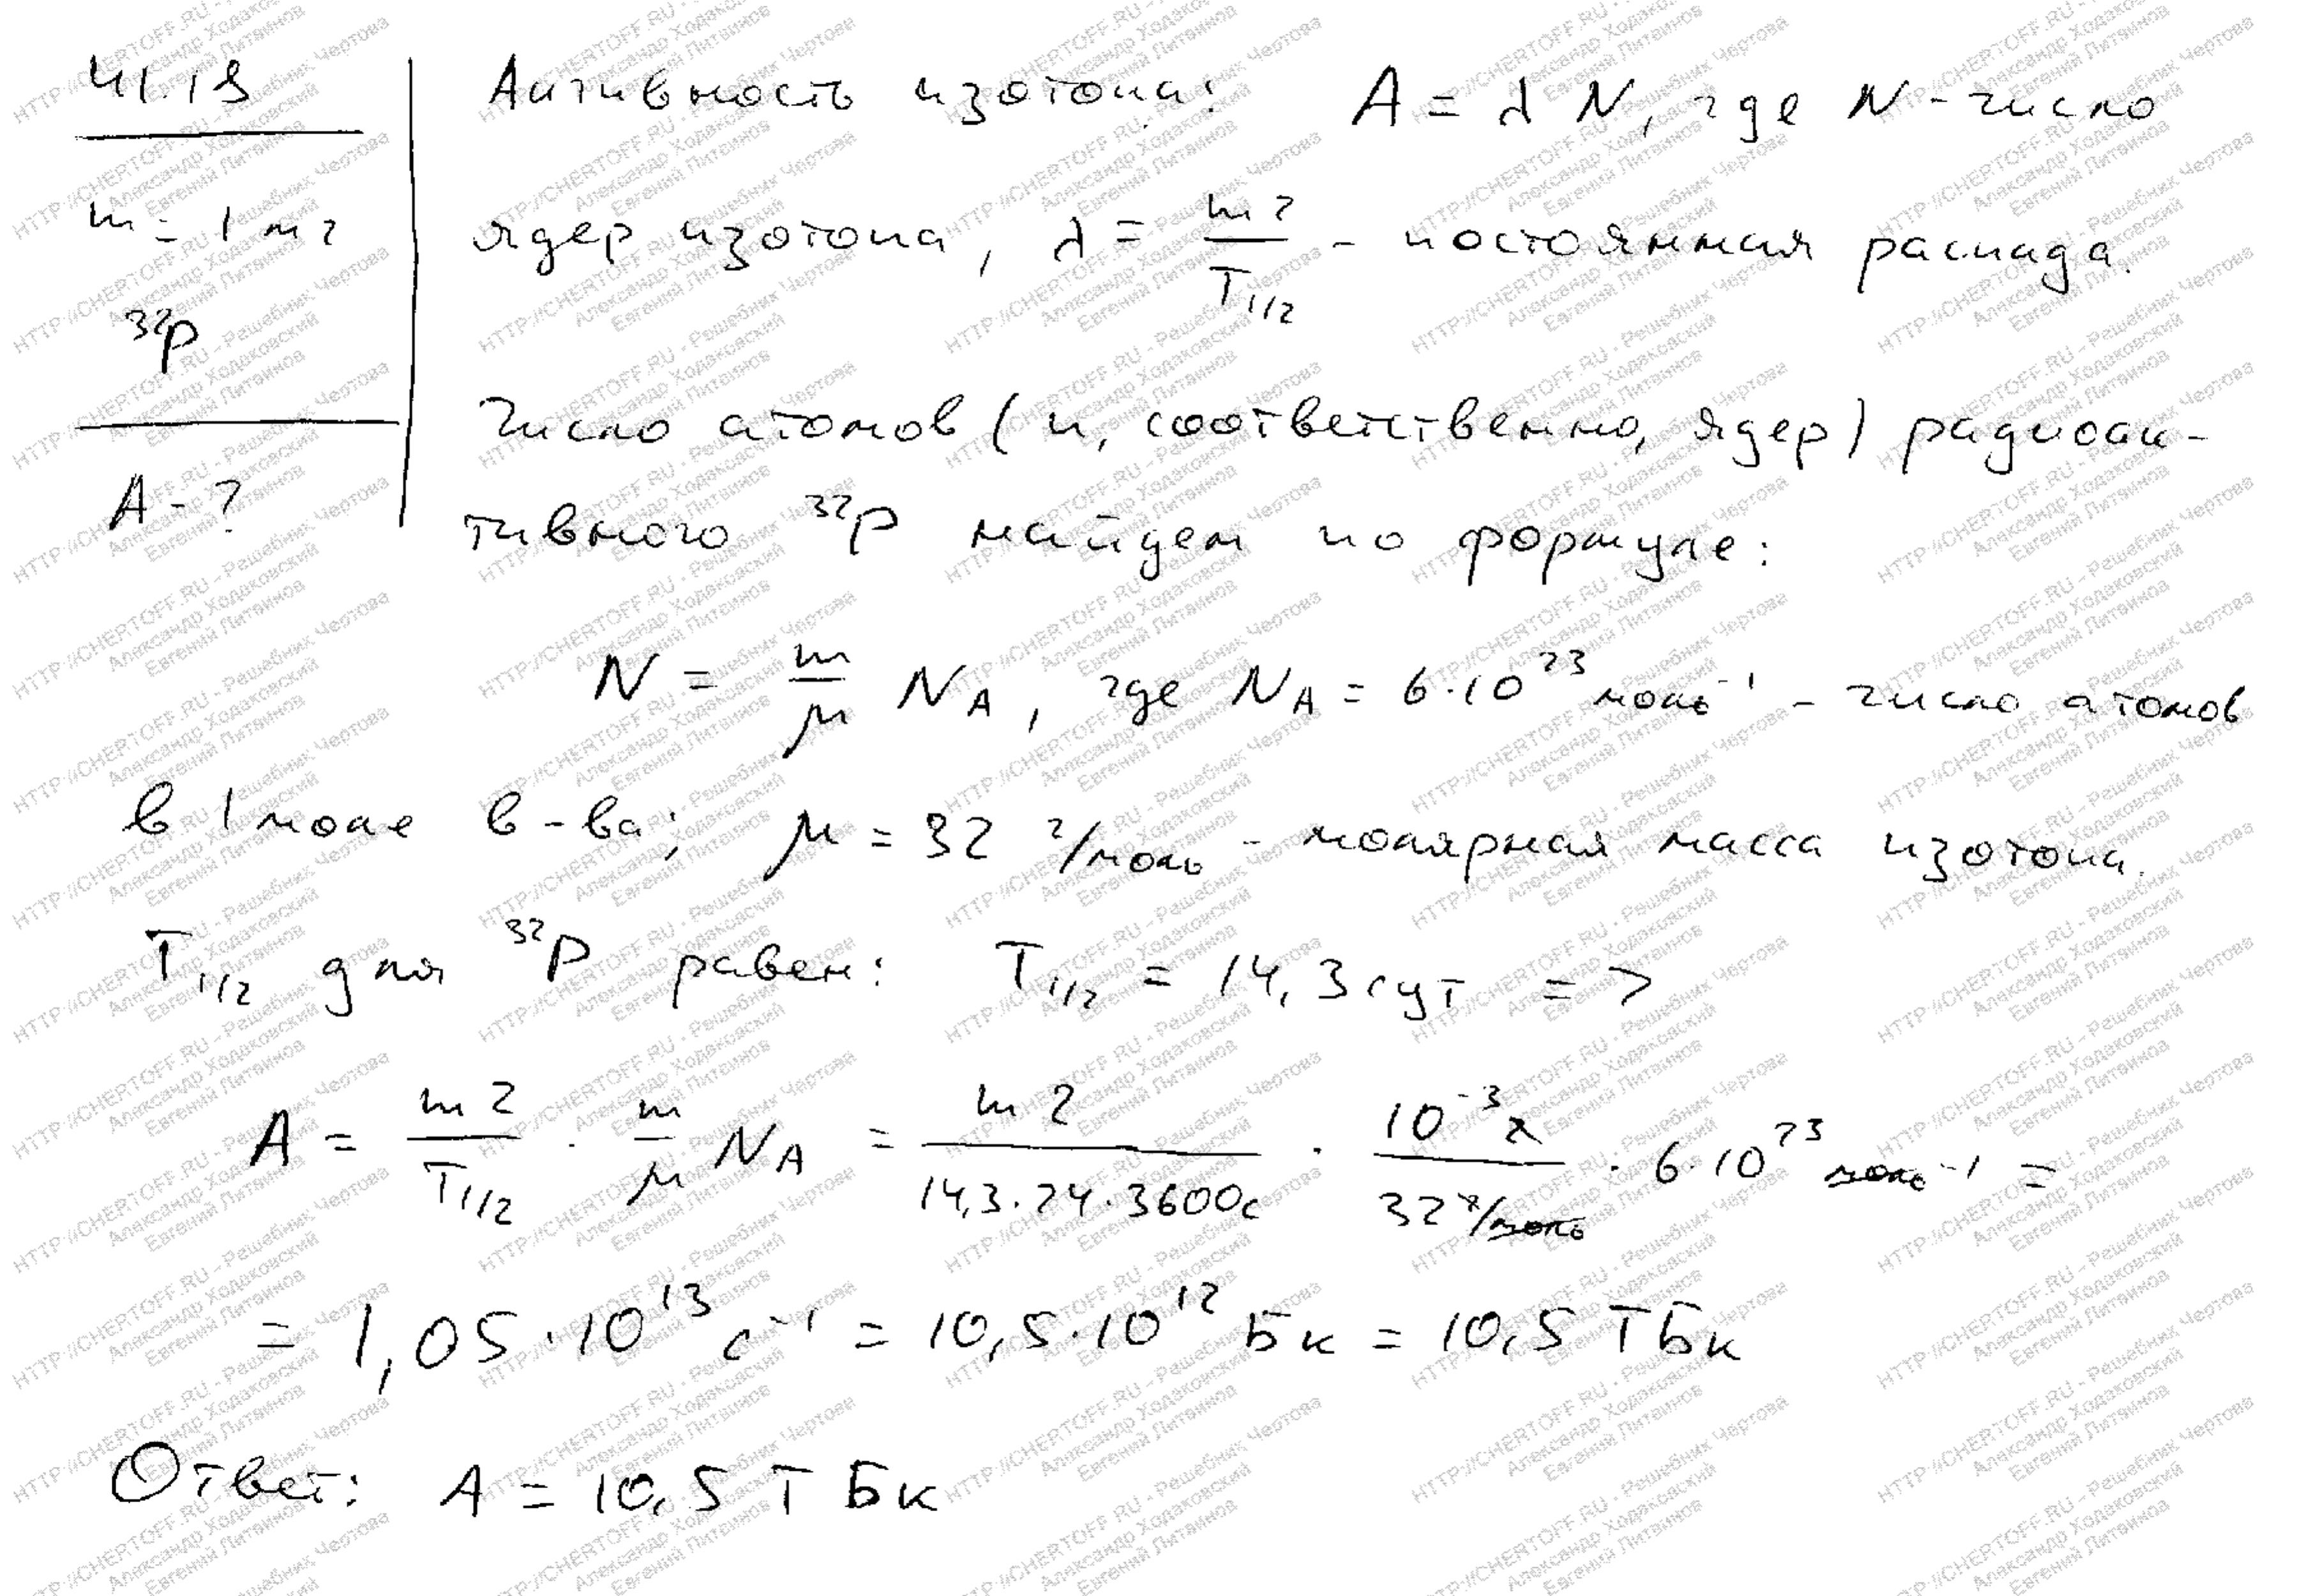 41.18
m = 1 мг
³²P
A - ?
Активность изотопа: A = λN, где N - число
ядер изотопа, λ = ln 2 / T₁/₂ - постоянная распада.
Число атомов (и, соответственно, ядер) радиоак-
тивного ³²P найдем по формуле:
N = m/μ N_A, где N_A = 6·10²³ моль⁻¹ - число атомов
в 1 моле в-ва; μ = 32 г/моль - молярная масса изотопа.
T₁/₂ для ³²P равен: T₁/₂ = 14,3 сут =>
A = ln 2 / T₁/₂ · m/μ N_A = ln 2 / 14,3·24·3600с · 10⁻³ г / 32 г/моль · 6·10²³ моль⁻¹ =
= 1,05·10¹³ с⁻¹ = 10,5·10¹² Бк = 10,5 ТБк
Ответ: A = 10,5 ТБк
HTTP://CHERTOFF.RU - Решебник Чертова
Александр Ходаковский
Евгений Литвинов